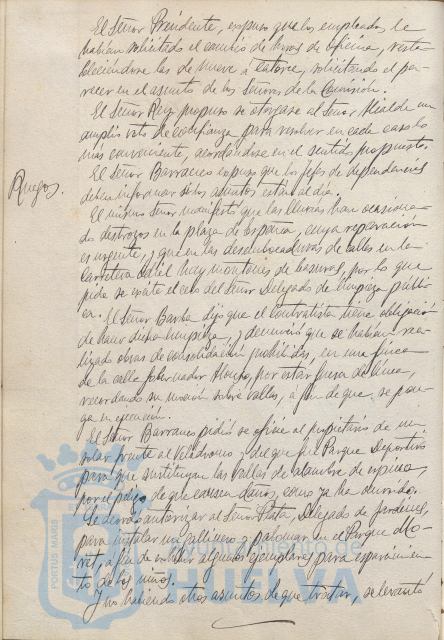 El Señor Presidente, expuso que los empleados, le
habían solicitado el cambio de horas de oficina, resta-
bleciéndose las de nueve a catorce, solicitando el pa-
recer en el asunto de los Señores de la Comisión.
El Señor Rey propuso se otorgase al Señor Alcalde un
amplio voto de confianza para resolver en cada caso lo
más conveniente, acordándose en el sentido propuesto.
Ruegos. El Señor Barranco expuso que los jefes de dependencias
deben informar si los asuntos están al día.
El mismo Señor manifestó que las lluvias han ocasiona-
do destrozos en la plaza de España, cuya reparación
es urgente, y que en las desembocaduras de calles en la
Carretera Odiel hay montones de basuras, por lo que
pide se excite el celo del Señor Delegado de limpieza públi-
ca. El Señor Barba dijo que el Contratista tiene obligación
de hacer dicha limpieza, y denunció que se habían rea-
lizado obras de consolidación prohibidas, en una finca
de la calle Gobernador Alonso, por estar fuera de línea,
recordando su moción sobre vallas, a fin de que se pon-
ga en ejecución.
El Señor Barranco pidió se oficie al propietario de un
solar frente al Velódromo y del que fué Parque Deportivo
para que sustituyan las vallas de alambre de espino,
por el peligro de que causen daños, como ya ha ocurrido.
Se acordó autorizar al Señor Plata, Delegado de Jardines,
para instalar un gallinero y palomar en el Parque Mo-
ret, a fin de exhibir algunos ejemplares para esparcimien-
to de los niños.
Y no habiendo otros asuntos de que tratar, se levantó
PORTUS MARIS
Ayuntamiento de
HUELVA